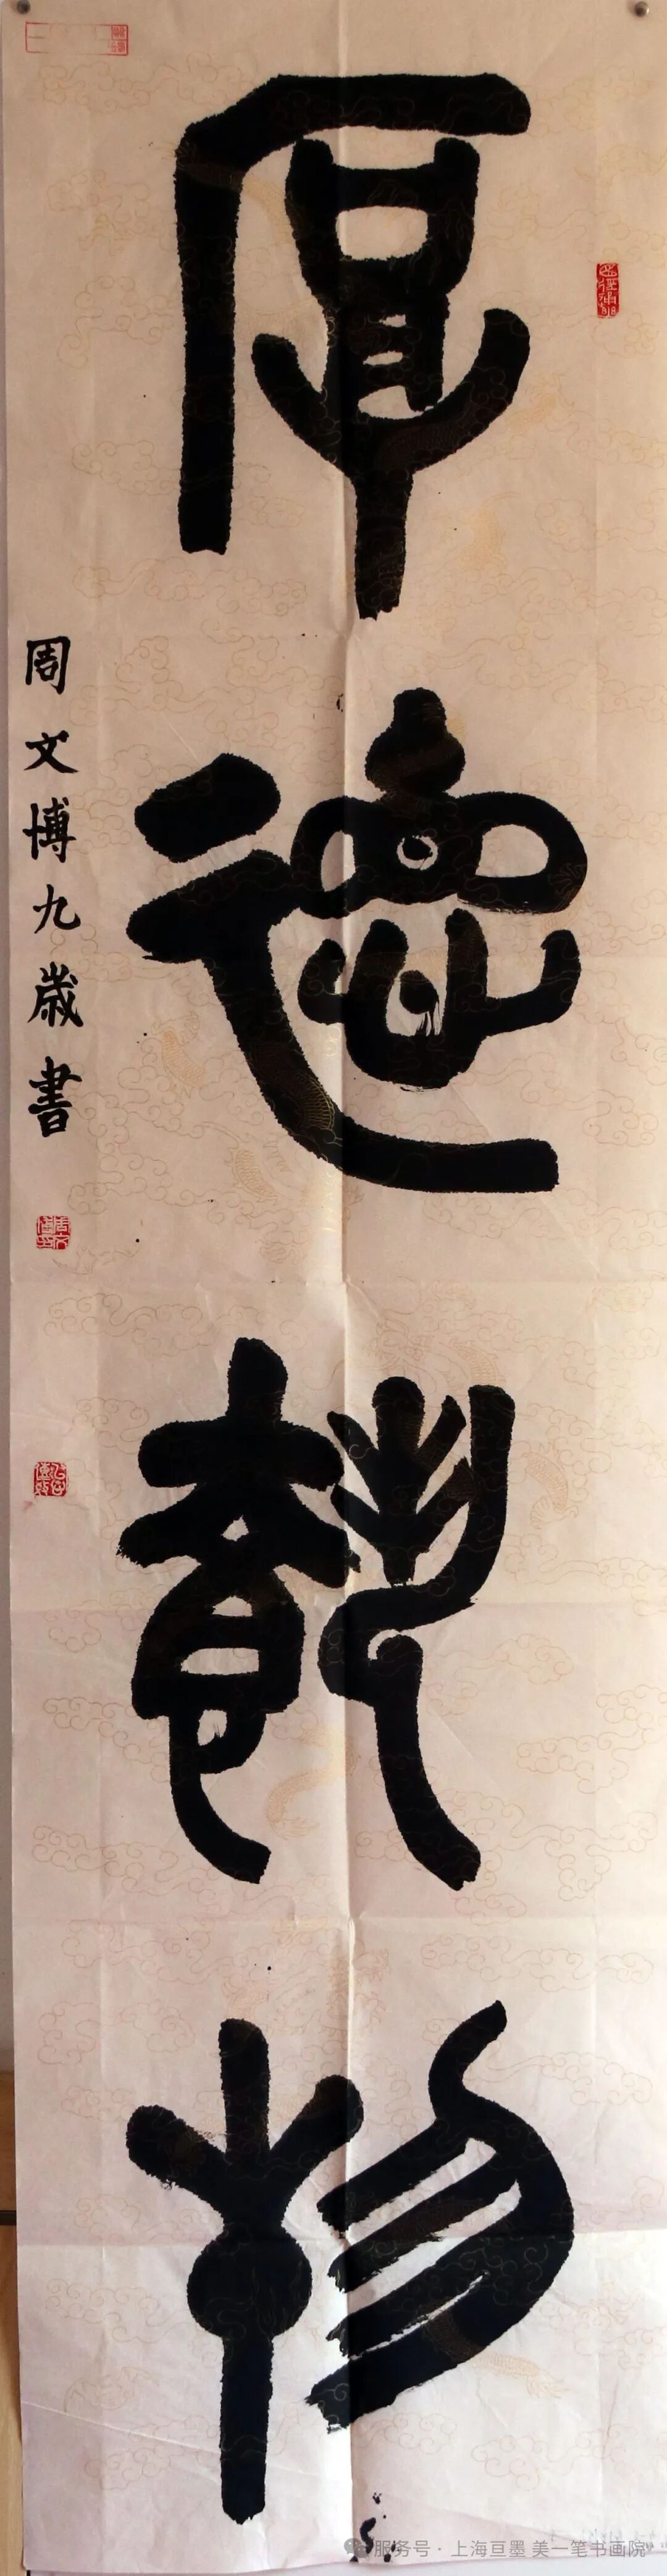 厚德載物
周文博九歲書
服务号 · 上海亘墨 美一笔书画院